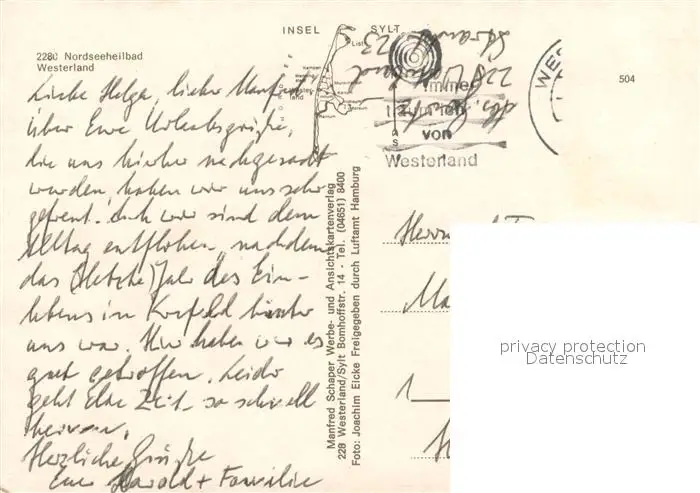 INSEL SYLT
2280 Nordseeheilbad
Westerland
504
List
immer
träumen
von
Westerland
WES
Liebe Helga, lieber Manfred
über Eure Urlaubsgrüße,
die uns hierher nachgesandt
wurden, haben wir uns sehr
gefreut. Auch wir sind dem
Alltag entflohen, nachdem
das (letzte) Jahr des Ein-
lebens in Krefeld hinter
uns war. Hier haben wir es
gut getroffen. Leider
geht die Zeit so schnell
herum.
Herzliche Grüße
Eure Harald + Familie
Manfred Schaper Werbe- und Ansichtskartenverlag
228 Westerland/Sylt Bomhoffstr. 14 - Tel. (04651) 8400
Foto: Joachim Eicke Freigegeben durch Luftamt Hamburg
Herrn
Ma
1
privacy protection
Datenschutz